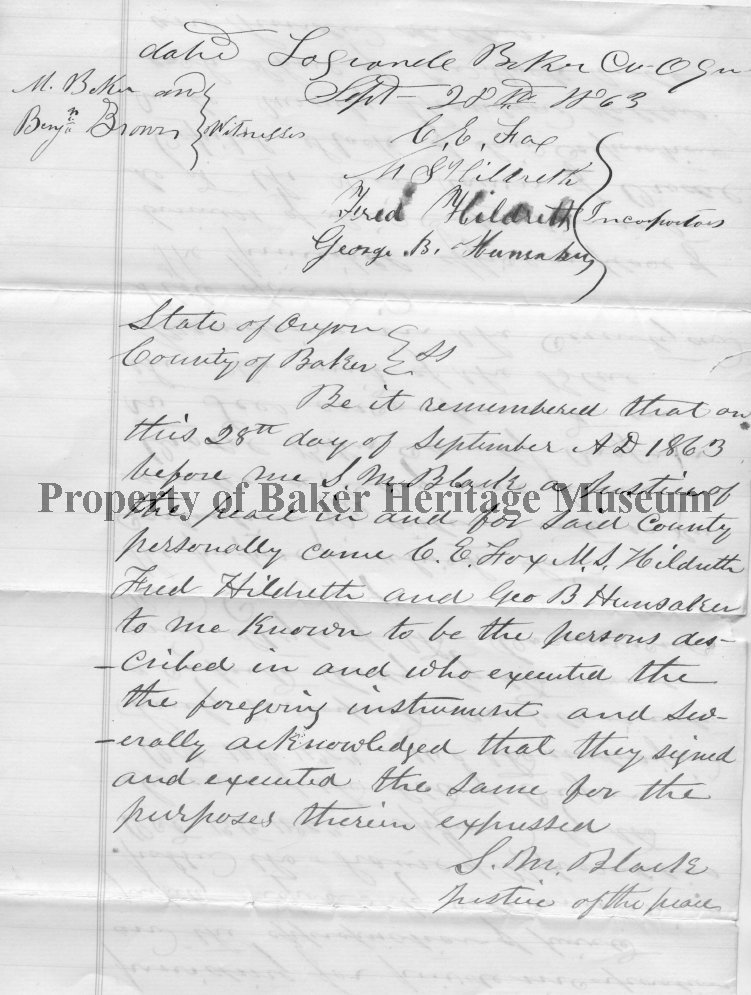 dated Lagrande Baker Co Ogn
Sept 28th 1863
M. Baker and
Benjn Brown
Witnesses
C. E. Fox
M S Hildreth
Fred Hildreth
George B. Hunsaker
Incorporators
State of Oregon
County of Baker
ss
Be it remembered that on
this 28th day of September A D 1863
before me S. M. Black a Justice of
Property of Baker Heritage Museum
the peace in and for said County
personally came C. E. Fox M. S. Hildreth
Fred Hildreth and Geo B Hunsaker
to me Known to be the persons des-
-cribed in and who executed the
the foregoing instrument and sev-
-erally acknowledged that they signed
and executed the same for the
purposes therein expressed
S. M. Black
Justice of the peace